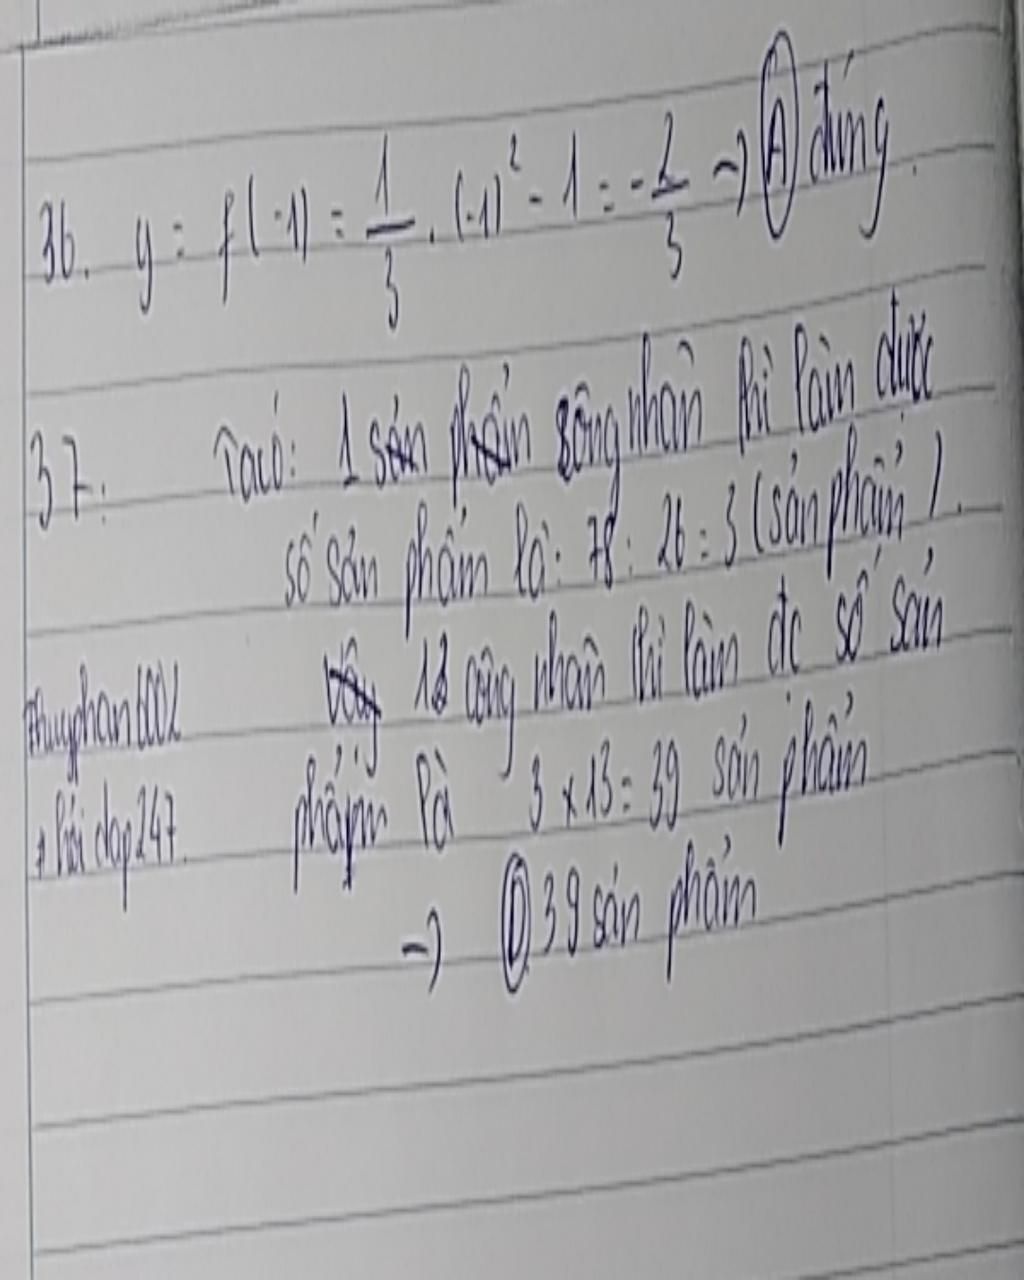 36. y = f(-1) = 1/3 . (-1)² - 1 = -2/3 → A đúng.
37. Ta có: 1 công nhân thì làm được
số sản phẩm là: 78 : 26 = 3 (sản phẩm).
13 công nhân thì làm đc số sản
phẩm là 3 x 13 = 39 sản phẩm
→ D 39 sản phẩm
thuyphan6002
hỏi đap247.